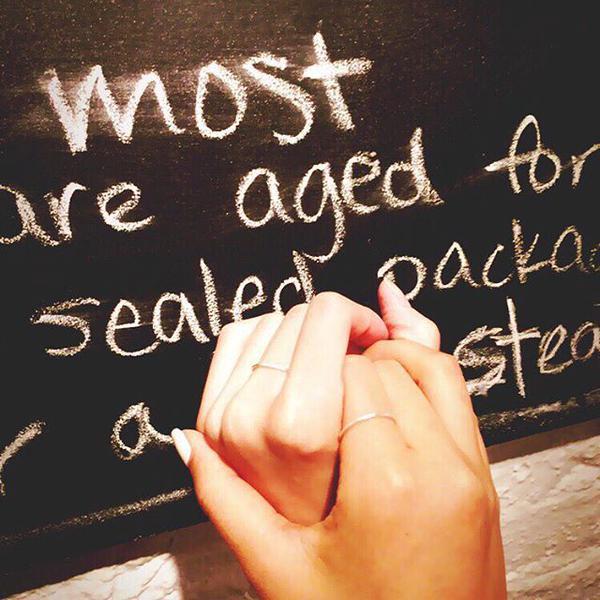 most
are aged for
sealed packa
r a stea